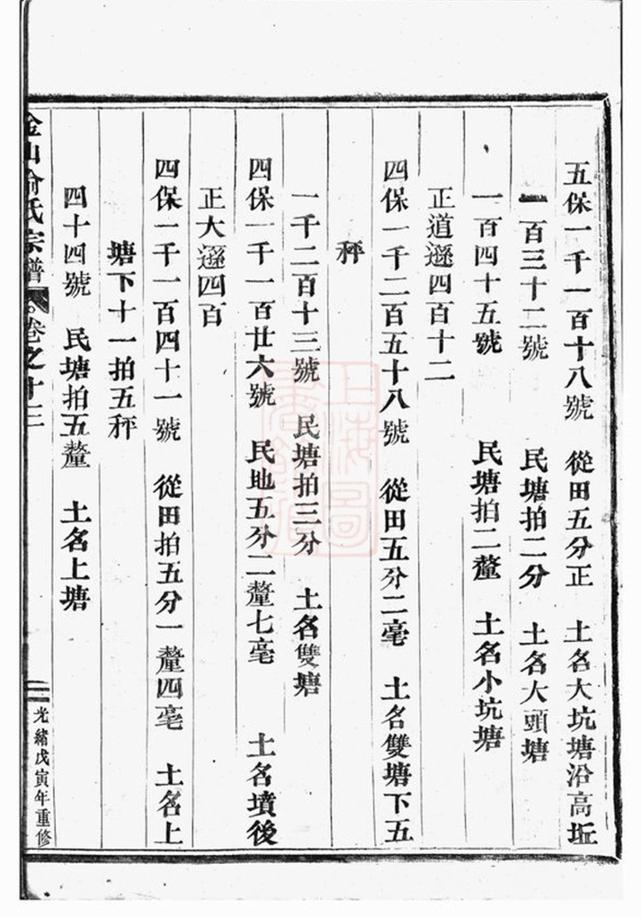 五保一千一百十八號　從田五分正　土名大坑塘沿高坵
一百三十二號　民塘拍二分　土名大頭塘
一百四十五號　民塘拍二釐　土名小坑塘
正道遜四百十二
四保一千二百五十八號　從田五分二毫　土名雙塘下五
秤
一千二百十三號　民塘拍三分　土名雙塘
四保一千一百廿六號　民地五分二釐七毫　土名墳後
正大遜四百
四保一千一百四十一號　從田拍五分一釐四毫　土名上
塘下十一拍五秤
四十四號　民塘拍五釐　土名上塘
金山俞氏宗譜　卷之十二
二　光緒戊寅年重修
上海圖